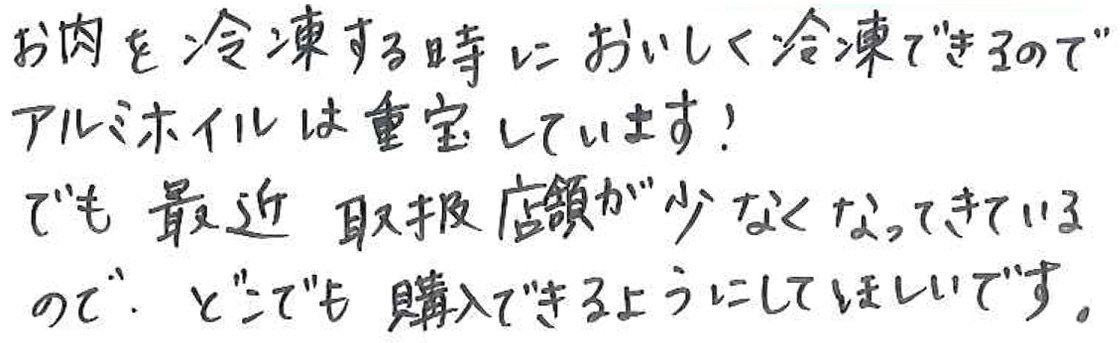 お肉を冷凍する時においしく冷凍できるので
アルミホイルは重宝しています!
でも最近 取扱店額が少なくなってきている
ので、どこでも購入できるようにしてほしいです。